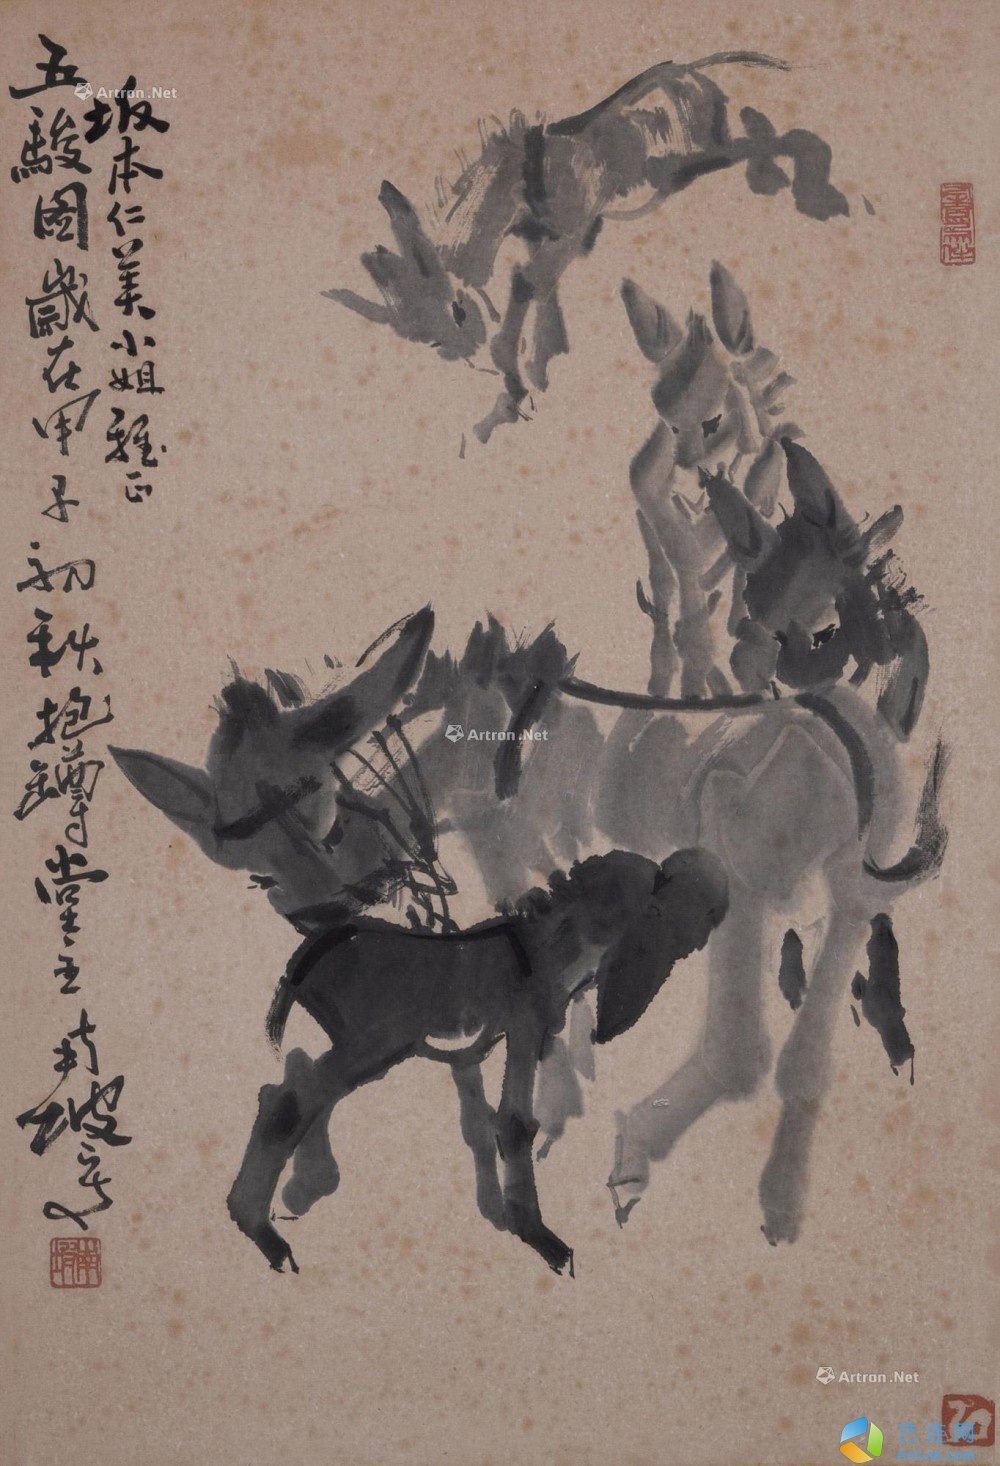 坂本仁美小姐雅正
五駿图歲在甲子初秋抱罇堂主黄
Artron.Net
Artron.Net
Artron.Net